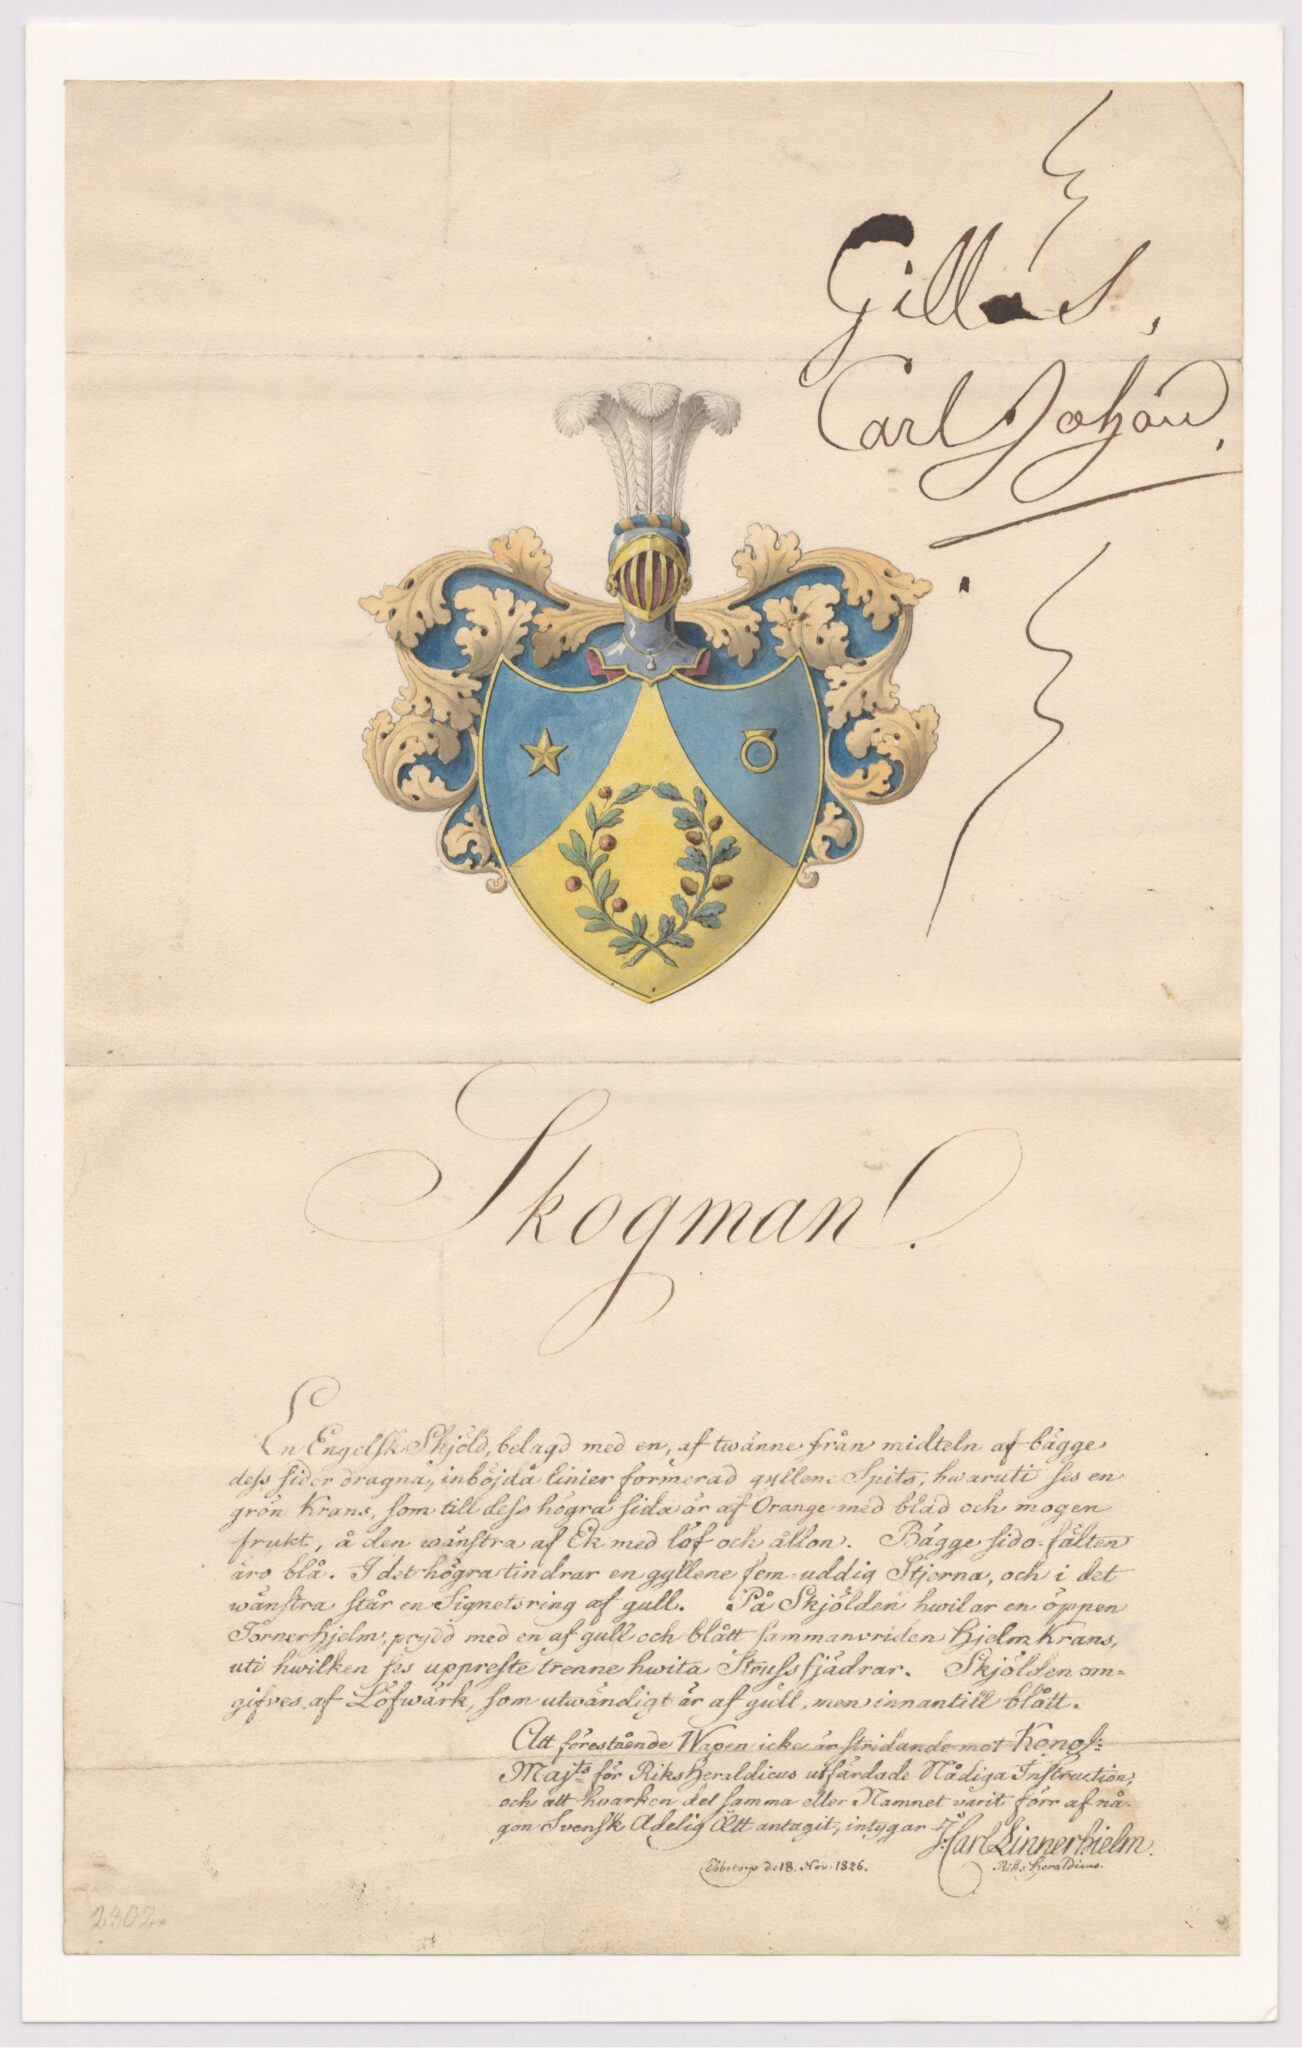 Gillas,
Carl Johan.
Skogman.
En Engelsk Skjöld, belagd med en, af twänne från midteln af bägge
dess sidor dragna, inböjda linier formerad gyllene Spits, hwaruti ses en
grön Krans, som till dess högra sida är af Orange med blad och mogen
frukt, å den wänstra af Ek med löf och ållon. Bägge sido-fälten
äro blå. I det högra tindrar en gyllene fem-uddig Stjerna, och i det
wänstra står en Signetsring af gull. På Skjölden hwilar en öppen
Tornerhjelm, prydd med en af gull och blått sammanvriden Hjelm Krans,
uti hwilken ses uppreste trenne hwita Strussfjädrar. Skjölden om-
gifves af Löfwärk, som utwändigt är af gull, men innantill blått.
Att förestående Wapen icke är stridande mot Kongl:
Majts för Riks Heraldicus utfärdade Nådiga Instruction,
och att hvarken det samma eller Namnet varit förr af nå-
gon Svensk Adelig Ätt antagit, intygar
J: Carl Linnerhielm.
Ebbetorp d: 18. Nov. 1826.
Riks Heraldicus.
2302